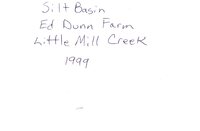 Silt Basin
Ed Dunn Farm
Little Mill Creek
1999